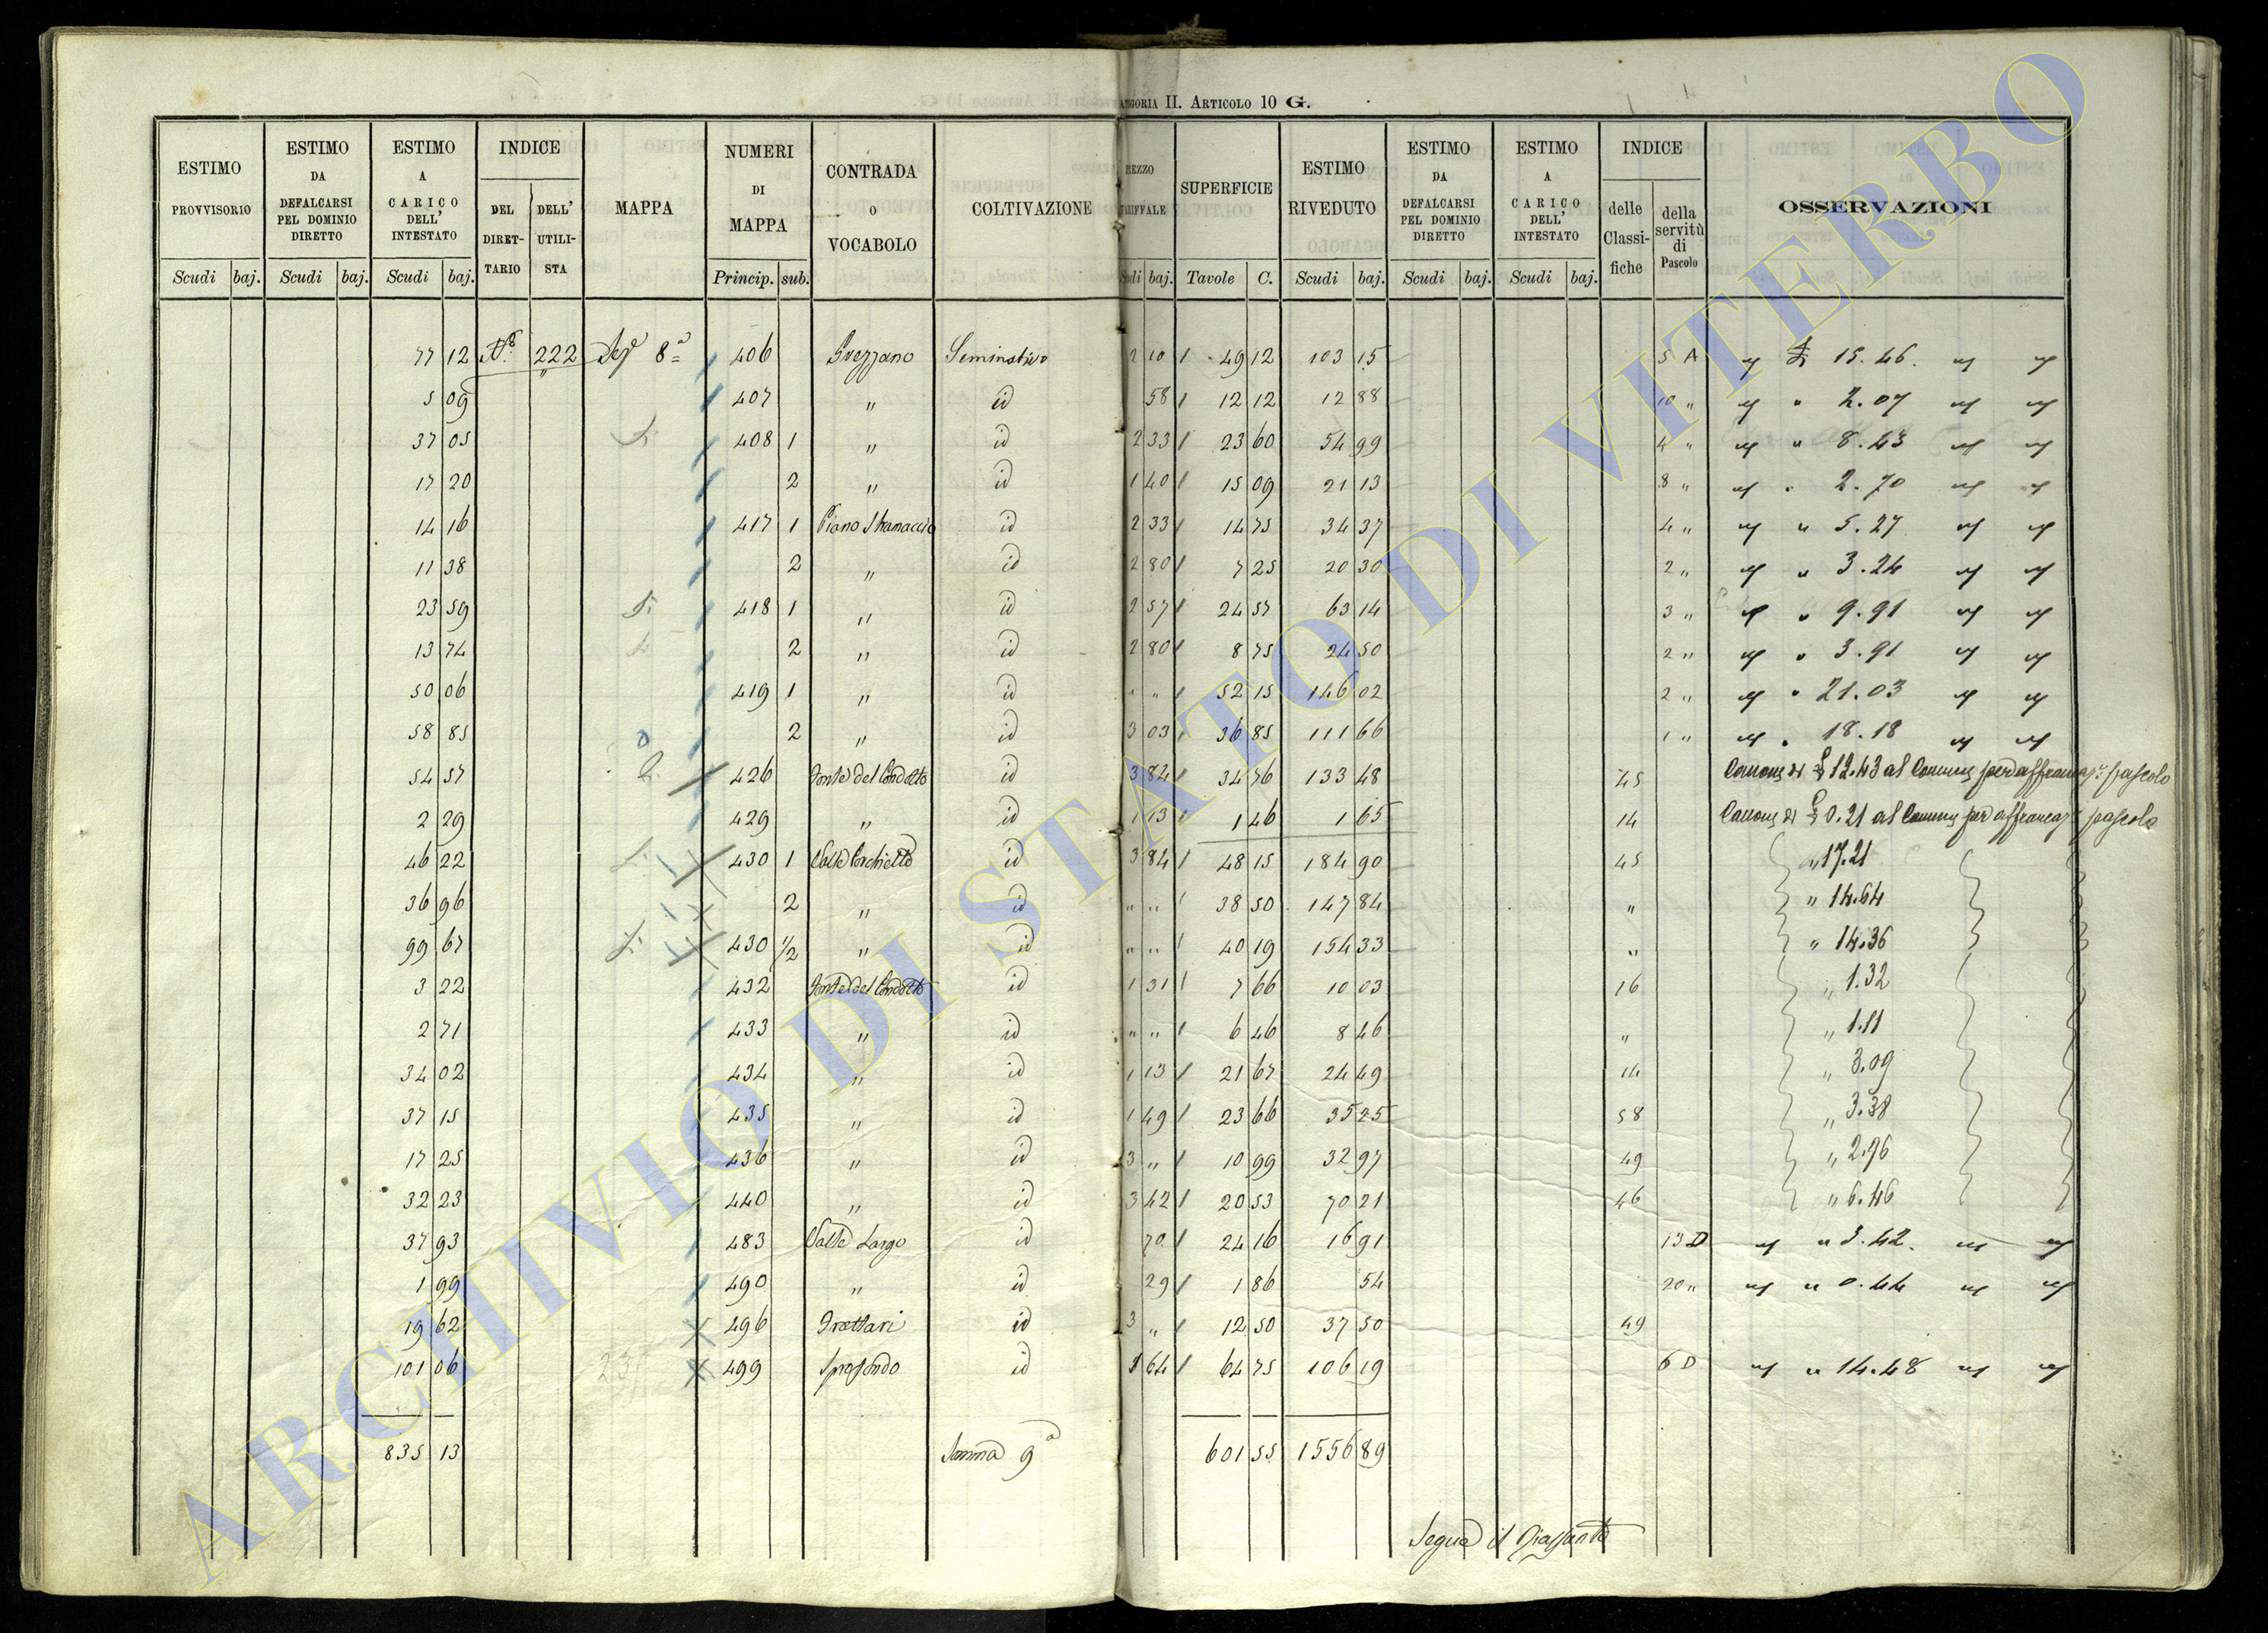 ATEGORIA II. ARTICOLO 10 G.
ESTIMO PROVVISORIO Scudi baj.
ESTIMO DA DEFALCARSI PEL DOMINIO DIRETTO Scudi baj.
ESTIMO A CARICO DELL' INTESTATO Scudi baj.
INDICE DEL DIRET- TARIO DELL' UTILI- STA
MAPPA
NUMERI DI MAPPA Princip. sub.
CONTRADA O VOCABOLO
COLTIVAZIONE
REZZO TARIFFALE udi baj.
SUPERFICIE Tavole C.
ESTIMO RIVEDUTO Scudi baj.
ESTIMO DA DEFALCARSI PEL DOMINIO DIRETTO Scudi baj.
ESTIMO A CARICO DELL' INTESTATO Scudi baj.
INDICE delle Classi- fiche della servitù di Pascolo
OSSERVAZIONI
77 12 222 8a 406 Seminativo 2 10 49 12 103 15 5 A 15.46
5 09 407 " id 58 12 12 12 88 10 " " 2.07
37 05 408 1 " id 2 33 23 60 54 99 4 " " 8.43
17 20 2 " id 1 40 15 09 21 13 8 " " 2.70
14 16 417 1 Piano id 2 33 14 75 34 37 4 " " 5.27
11 38 2 " id 2 80 7 25 20 30 2 " " 3.24
23 59 418 1 " id 2 57 24 57 63 14 3 " " 9.91
13 74 2 " id 2 80 8 75 24 50 2 " " 3.91
50 06 419 1 " id " " 52 15 146 02 2 " " 21.03
58 85 2 " id 3 03 36 85 111 66 1 " " 18.18
54 57 426 Fonte del Condotto id 3 84 34 76 133 48 45 Canone di £ 12.43 al Comune per affrancaz. pascolo
2 29 429 " id 1 13 1 46 1 65 14 Canone di £ 0.21 al Comune per affrancaz. pascolo
46 22 430 1 Valle id 3 84 48 15 184 90 45 " 17.21
36 96 2 " id " " 38 50 147 84 " " 14.64
99 67 430 1/2 " id " " 40 19 154 33 " " 14.36
3 22 432 Fonte del Condotto id 1 31 7 66 10 03 16 " 1.32
2 71 433 " id " " 6 46 8 46 " " 1.11
34 02 434 " id 1 13 21 67 24 49 14 " 3.09
37 15 435 " id 1 49 23 66 35 25 58 " 3.38
17 25 436 " id 3 " 10 99 32 97 49 " 2.96
32 23 440 " id 3 42 20 53 70 21 46 " 6.46
37 93 483 Valle Largo id 70 24 16 16 91 13 D " 3.42
1 99 490 " id 29 1 86 54 20 " " 0.44
19 62 496 Frattari id 3 " 12 50 37 50 49
101 06 499 Sprofondo id 1 64 64 75 106 19 6 D " 14.48
835 13 Somma 9a 601 55 1556 89
Segue il Riassunto
ARCHIVIO DI STATO DI VITERBO